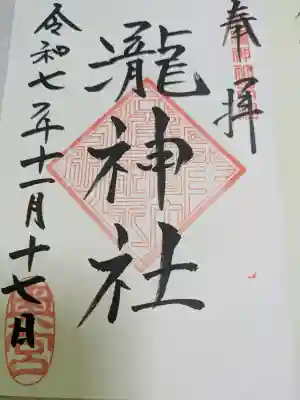 奉拝
瀧神社
令和七年十一月十七日